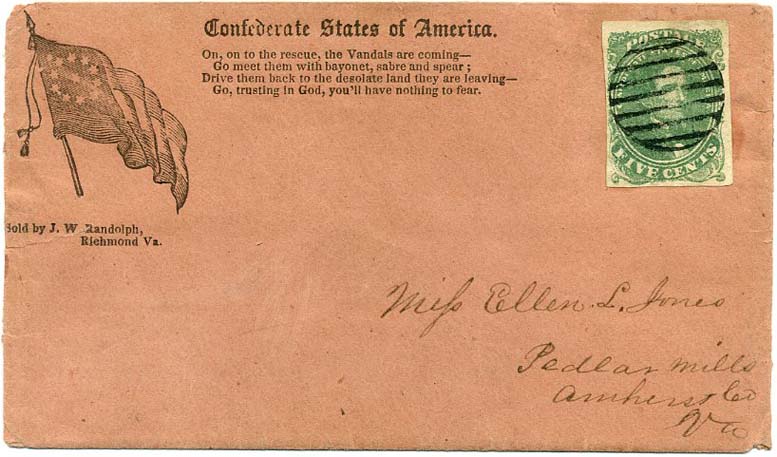 Confederate States of America.
On, on to the rescue, the Vandals are coming—
Go meet them with bayonet, sabre and spear;
Drive them back to the desolate land they are leaving—
Go, trusting in God, you'll have nothing to fear.
POSTAGE
FIVE CENTS
Sold by J. W. Randolph,
Richmond Va.
Miss Ellen L. Jones
Pedlar Mills
Amherst Co
Va